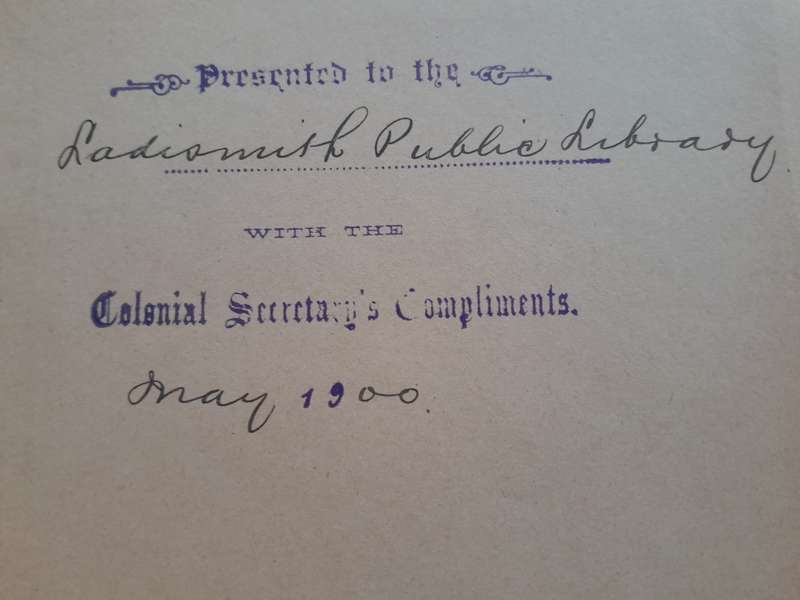 Presented to the
Ladismith Public Library
WITH THE
Colonial Secretary's Compliments.
May 1900.